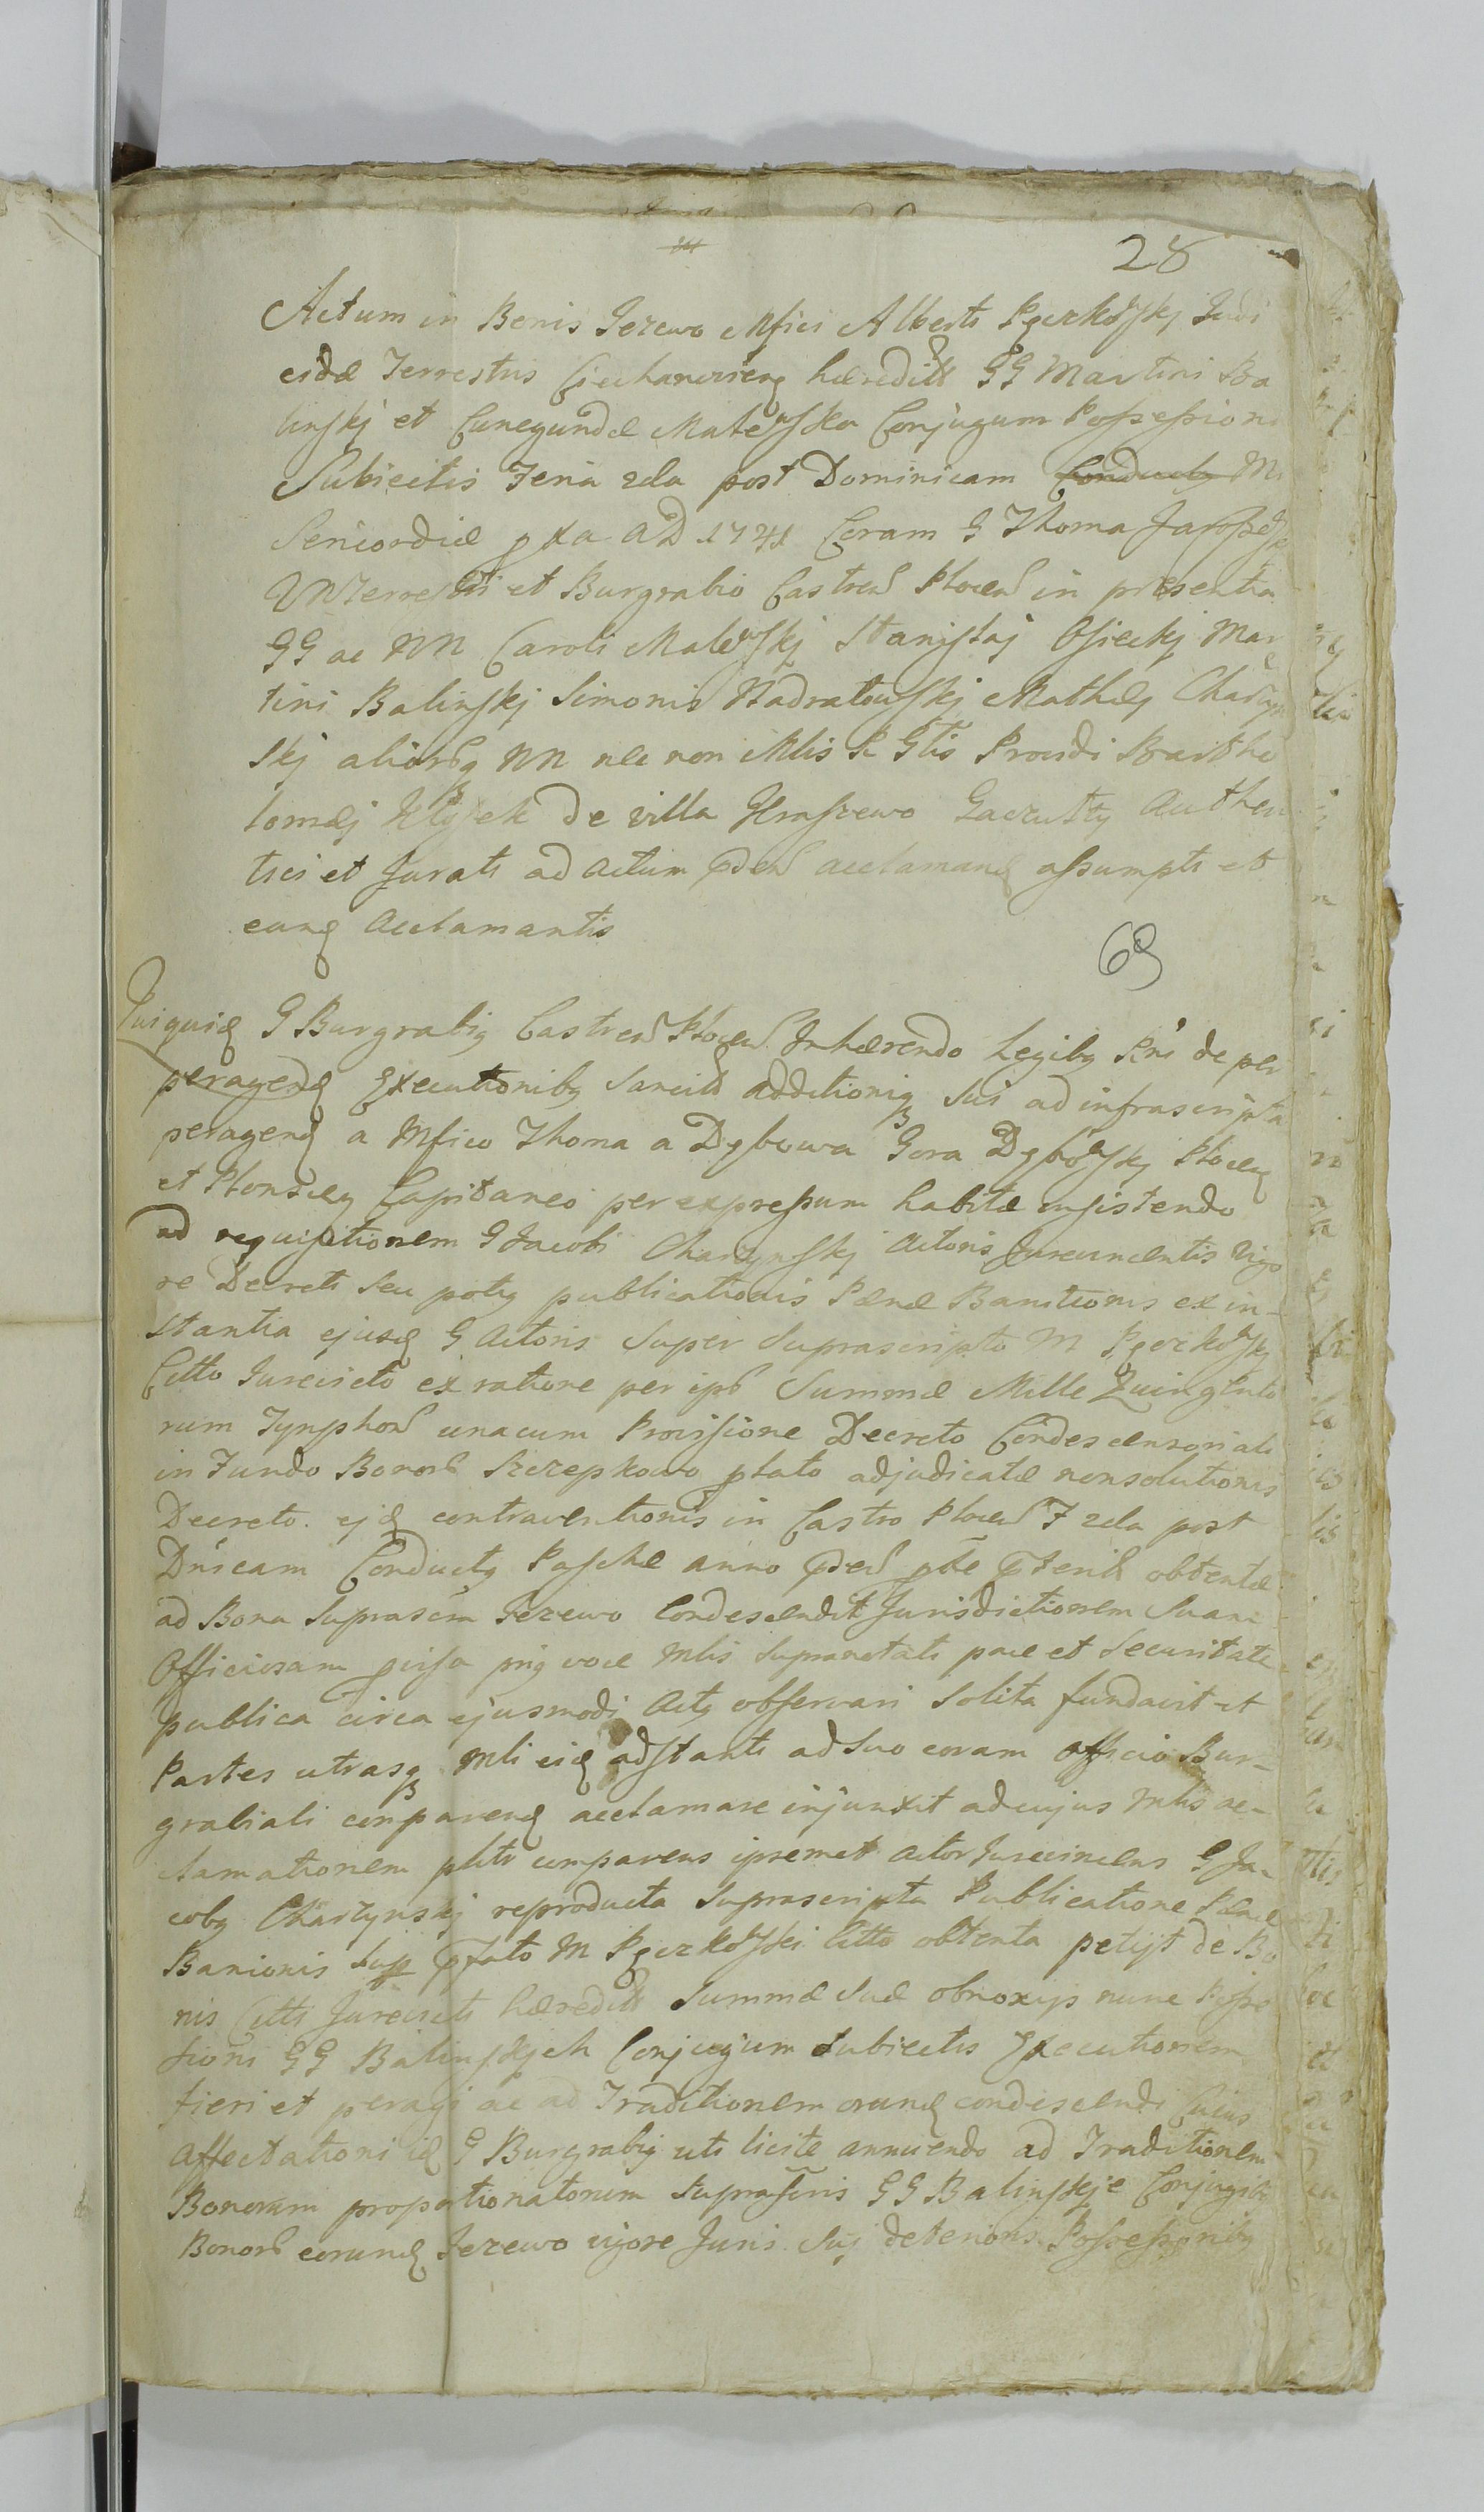 28
Actum in Bonis Jezewo Mfici Alberti Pęczkowskj Judi
cida Terrestris Ciechanoviens hæreditt GG Martini Ba
linskj et Cunegundæ Malewska Conjugum Possessioni
Subiectis Feria 2da post Dominicam Conductg Mi
sericordiæ pxa AD 1741 Coram G Thoma
VNTerrestri et Burgrabio Castren Plocen in præsentia
GG ac NN Caroli Malewskj Stanislaj Osieckj Mar
tini Balinskj Simonis Nadratowskj Mathæj Charzyn
skj aliorg NN nec non Mlis R Gtis Providi Bartho
lomæj de villa Authen
tici et Jurati ad Actum acclamand assumpti et
eund Acclamantis
69
Quiquid G Burgrabig Castren Plocen Inhærendo Legibg Rni de per
peragend Executionibg Sancitt additionig Sui ad infrascripta
peragend a Mfico Thoma a Dębowa Gora Dębowskj Plocen
et Plonscen Capitaneo per expressum habitæ insistendo
ad requisitionem G Jacobi Charzynskj Actoris Jurevincentis Vigo
re Decreti seu potig publicationis Pænæ Banitionis ex in-
stantia ejusd G Actoris Super Suprascripto M Pęczkowskj
Citto Jurevicto ex ratione per ips Summæ Mille Quingento
rum Tynphor unacum Provisione Decreto Condescensoriali
in Fundo Bonor Szczepkowo plato adjudicatæ nonsolutionis
Decreto ejd contraventionis in Castro Plocen F 2da post
Dnicam Conductg Paschæ anno obtentæ
ad Bona Suprascra Jezewo Condescendit Jurisdictionem Suam
Officiosam voce Mlis Supranotati pace et Securitate
publica circa ejusmodi Actg observari Solita fundavit et
Partes utrasq Mli eid adstanti ad Suo coram Officio Bur-
grabiali comparend acclamare injunxit ad cujus Mlis ac-
clamationem pltr comparens ipsemet Actor Jurevincens G Ja-
cobg Charzynskj reproducta Suprascripta Publicatione Pænæ
Banionis Sup M Pęczkowski Citto obtenta petijt de Bo
nis Citti Jurevicti hæreditt Summæ Suæ obnoxijs nunc Posse
sioni GG Balinskjch Conjugum Subiectis Executionem
fieri et peragi ac ad Traditionem eorund condescendi Cuius
Affectationi id G Burgrabig uti licitæ annuendo ad Traditionem
Bonorum proportionatorum Suprascris GG Balinskje Conjugibg
Bonor eorund Jezewo vigore Juris Suj deterioris Possessoribg